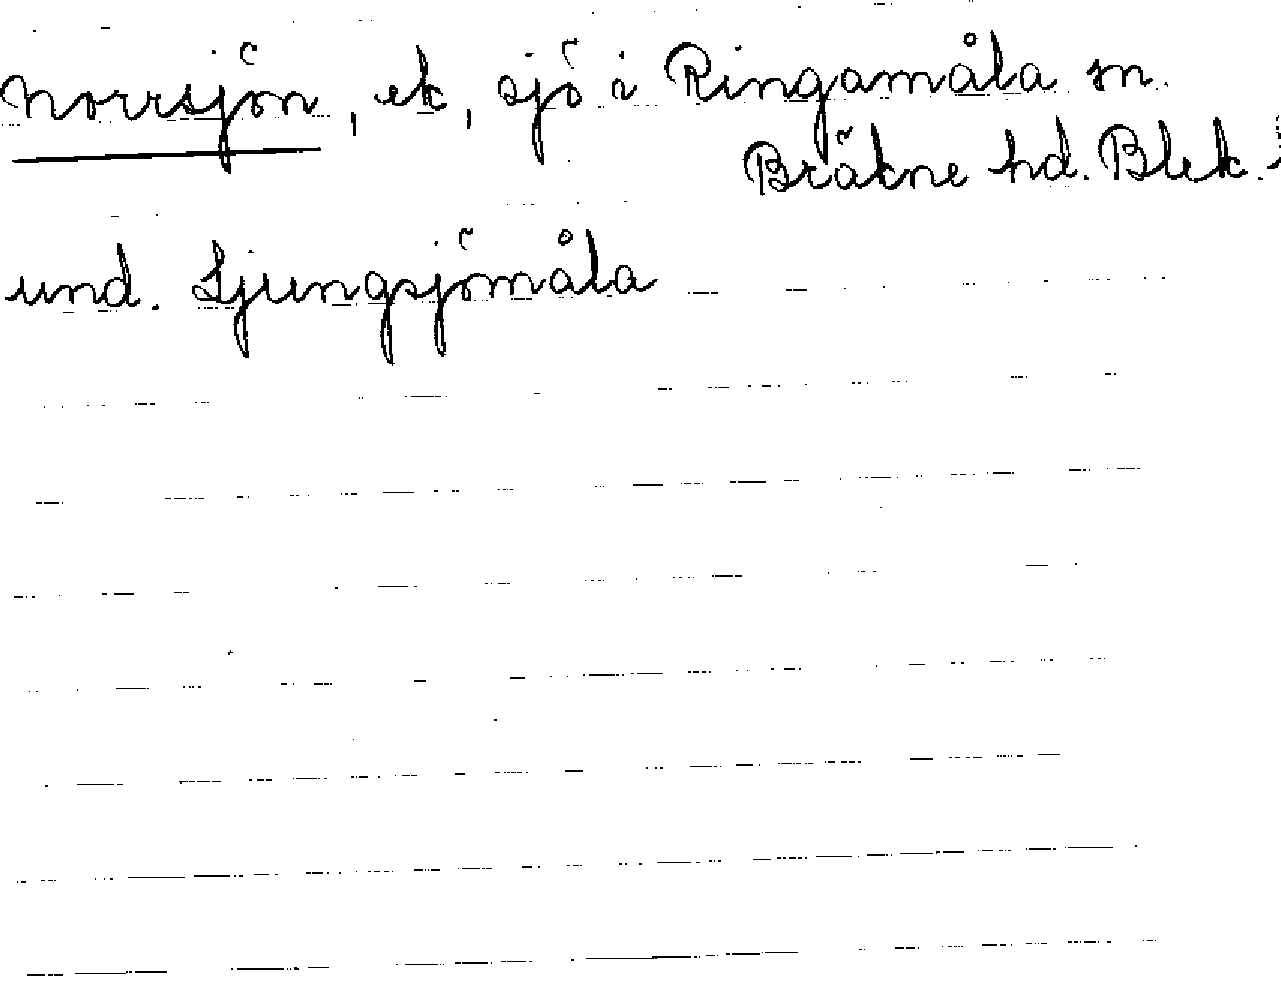 Norrsjön, ek, sjö i Ringamåla sn.
Bräkne hd. Blek.
und. Ljungsjömåla